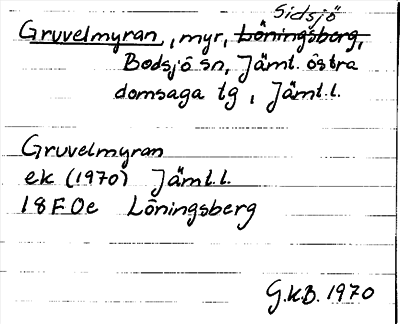 Sidsjö
Gruvelmyran, myr, Löningsberg,
Bodsjö sn, Jämt. östra
domsaga tg, Jämt.l.
Gruvelmyran
ek (1970) Jämt.l.
18F0e Löningsberg
G.K.B. 1970